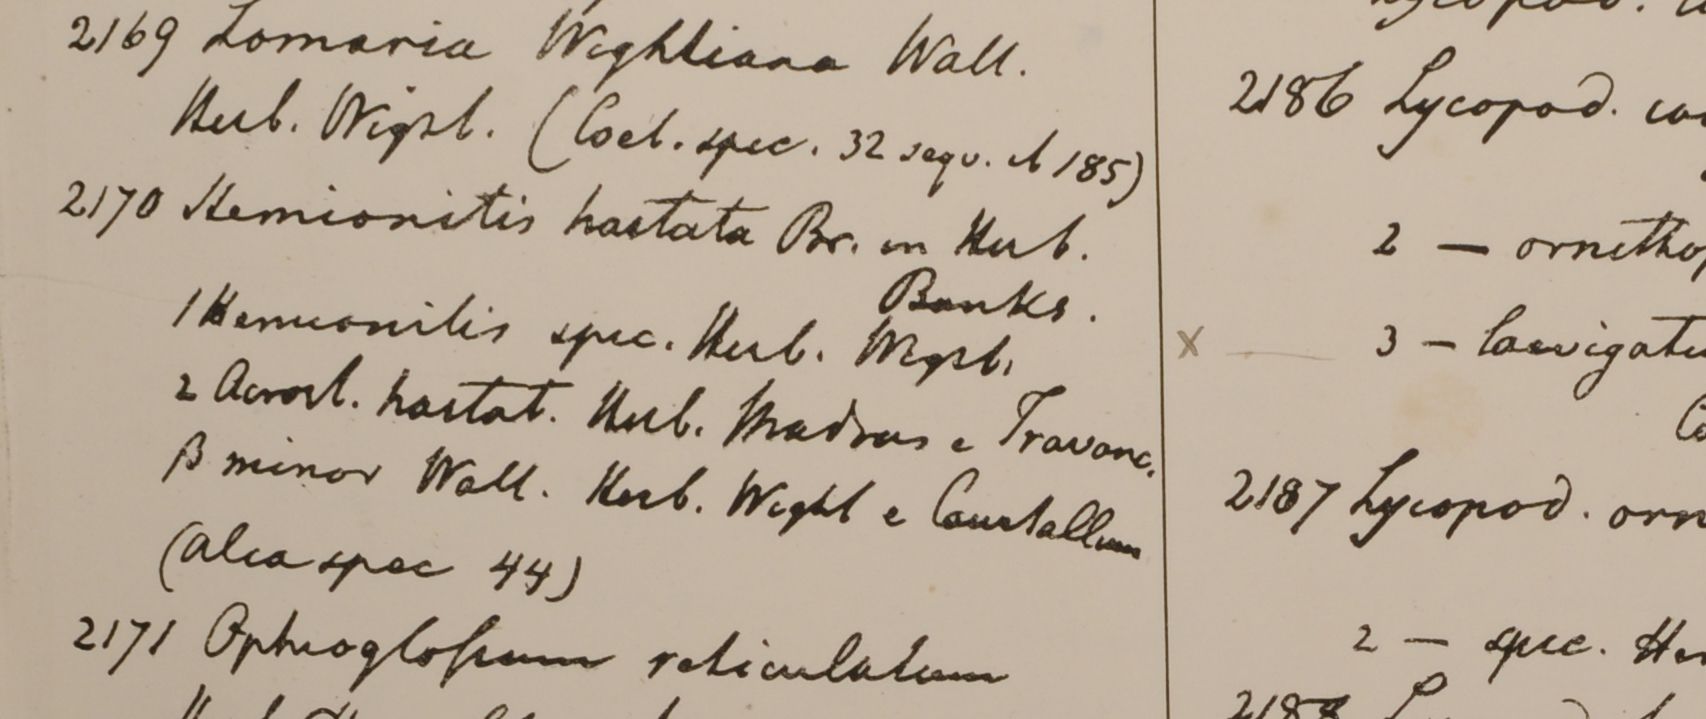 2169 Lomaria Wightiana Wall.
Herb. Wight. (Coet. spec. 32 sequ. et 185)
2170 Hemionitis hastata Br. in Herb.
Banks.
1 Hemionitis spec. Herb. Wight.
2 Acrost. hastat. Herb. Madras e Travanc.
β minor Wall. Herb. Wight e Courtallum
(alia spec 44)
2171 Ophioglossum reticulatum
2186 Lycopod.
2 —
X 3 —
2187 Lycopod.
2 — spec.
2188